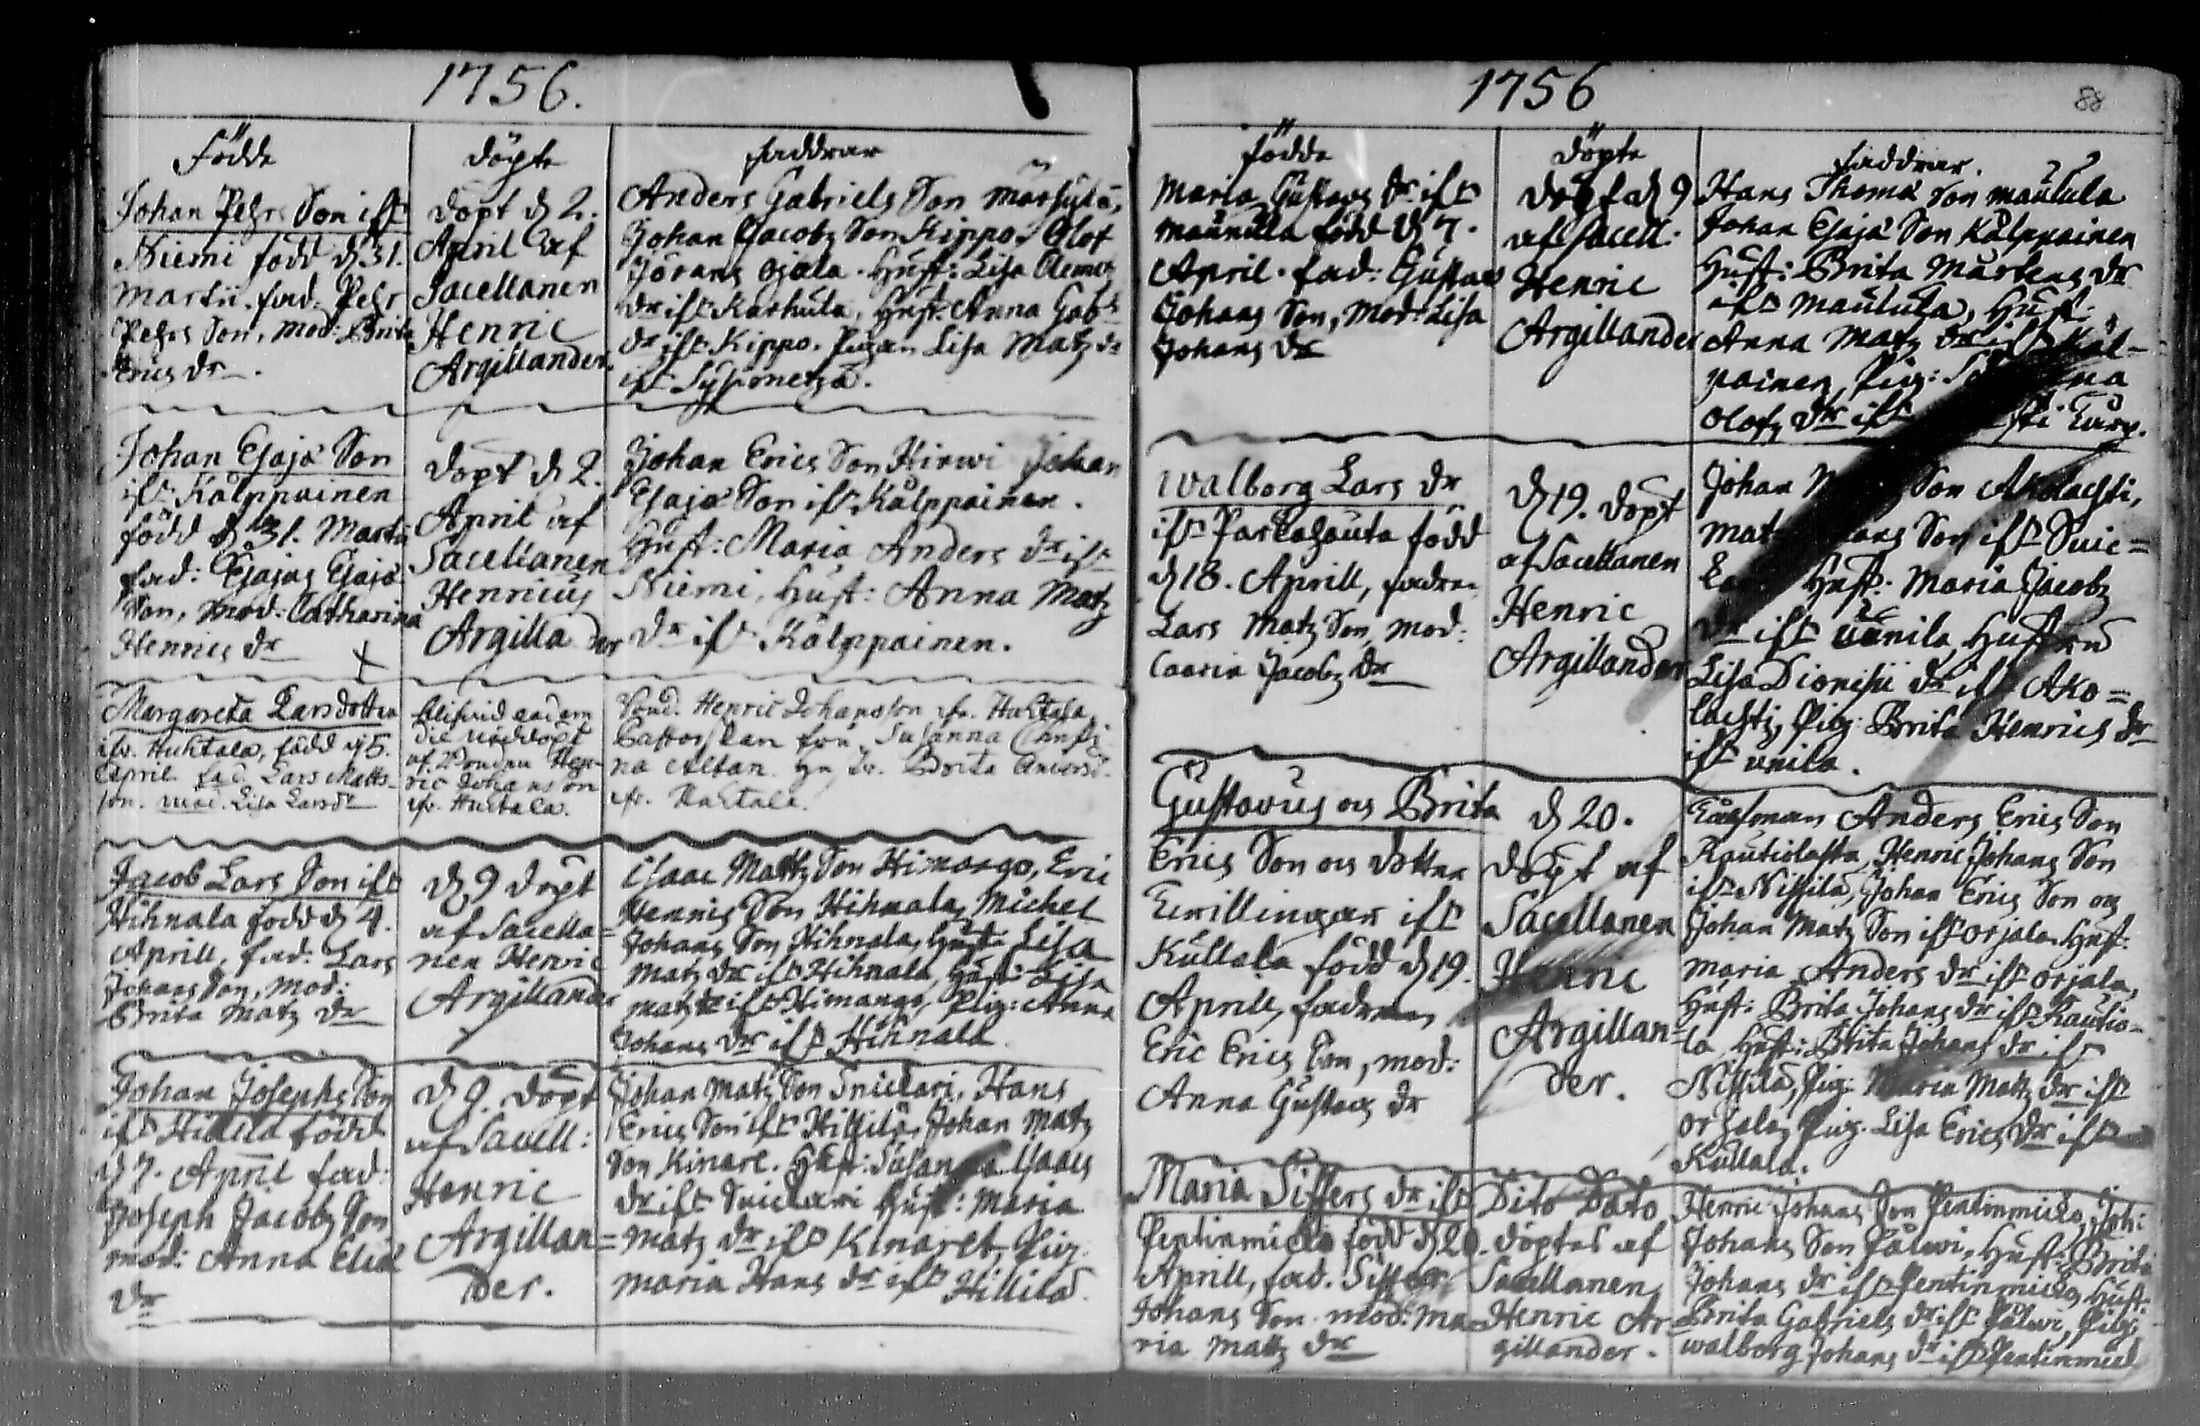 1756.
Födde
Johan Pehrs Son ifr
Niemi född d 31.
Martii. fad: Pehr
Pehrs Son, mod: Brita
Erics dr
döpte
döpt d 2.
April af
Sacellanen
Henric
Argillander
faddrar
Anders Gabriels Son
Johan Jacobs Son Kippo. Olof
Jörans ojala. Hust: Lisa
dr ifr Karhula, Hust: Anna Gabr
dr ifr Kippo. Pigan Lisa Matz dr
ifr
Johan Esaiæ Son
ifr Kälppäinen
född d 31. Marti
fad: Esaias Esaiæ
Son, mod: Catharina
Henrics dr
döpt d 2.
April af
Sacellanen
Henricus
Argillander
Johan Erics Son Hirwi Johan
Esaiæ Son ifr Kälppäinen.
Hust: Maria Anders dr ifr
Niemi, Hust: Anna Matz
dr ifr Kälppäinen.
Margareta Larsdotter
ifr. Huhtala, född d 5.
April fad. Lars Matts-
son. mod. Lisa Larsdr
eadem
die nöddöpt
af Bonden Hen-
ric Johansson
ifr. Huhtala.
Henric Johansson ifr. Huhtala
fru Susanna Christi
na Brita Andersd.
ifr. Huhtala.
Jacob Lars Son ifr
Hihnala född d 4.
Aprill, fad: Lars
Johans Son, mod:
Brita Matz dr
d 9 döpt
af Sacella-
nen Henric
Argillander
Isaac Mattz Son Himango, Eric
Henrics Son Hihnala, Michel
Johans Son Hihnala, Hust: Lisa
Matz dr ifr Hihnala, Hust: Lisa
matz dr ifr Himango, Pig: Anna
Johans dr ifr Hihnala
Johan Josephs Son
ifr Hillilä född
d 7. April fad:
Joseph Jacobs Son
mod: Anna Eliæ
dr
d 9. döpt
af Sacell:
Henric
Argillan=
der.
Johan Matz Son Snickari, Hans
Erics Son ifr Hillilä, Johan Matz
Son Kinare. Hust: Susanna Isaacs
dr ifr Snickari Hust: Maria
Matz dr ifr Kinaret, Pig.
Maria Hans dr ifr Hillilä.
1756
88
födde
Maria Gustavs dr ifr
Maunula född d 7.
April. fad: Gustav
Johans Son, Mod: Lisa
Johans dr
döpte
döpt d 9
af Sacell:
Henric
Argillander
faddrar.
Hans Thomæ Son Maulula
Johan Esaiæ Son Kälppäinen
Hust: Brita Mårtens dr
ifr Maulula, Hust:
Anna Matz dr ifr Käl-
päinen, Pig:
Olofs dr ifr
Walborg Lars dr
ifr född
d 18. Aprill, fadren
Lars Matz Son, mod:
Caarin Jacobs dr
d 19. döpt
af Sacellanen
Henric
Argillander
Johan Son Akolachti,
Son ifr Snic=
Hust: Maria Jacobs
dr ifr unila, Hustru
Lisa Dionisii dr ifr Ako=
lachti, Pig: Brita Henrics dr
ifr unila.
Gustavus och Brita
Erics Son och dotter
Twillingar ifr
Kullala född d 19.
Aprill, fadren
Eric Erics Son, mod:
Anna Gustavs dr
d 20.
döpt af
Sacellanen
Henric
Argillan=
der.
Anders Erics Son
Rautiola, Henric Johans Son
ifr Nissilä, Johan Erics Son och
Johan Matz Son ifr orjala, Hust:
Maria Anders dr ifr orjala,
Hust: Brita Johans dr ifr Rautio-
la Hust: Brita Johans dr ifr
Nissilä, Pig: Maria Matz dr ifr
orjala, Pig. Lisa Erics dr ifr
Kullala.
Maria Siffers dr ifr
Pentinmicko född d 20.
Aprill, fad. Siffer
Johans Son mod: Ma=
ria Mattz dr
Dito Dato
döptes af
Sacellanen
Henric Ar=
gillander.
Henric Johans Son Pentinmicko, Joh:
Johans Son Pälwi, Hust: Brita
Johans dr ifr Pentinmicko, Hust:
Brita Gabriels dr ifr Pälwi, Pig:
walborg Johans dr ifr Pentinmick